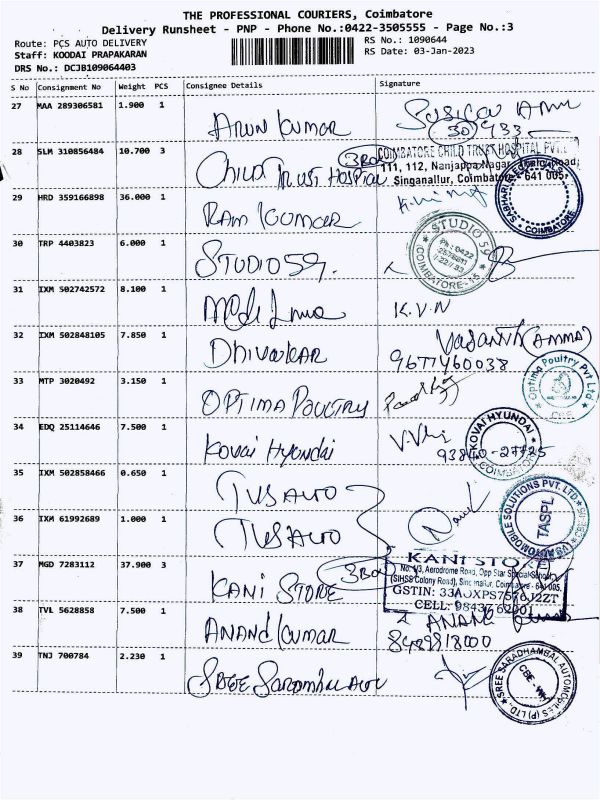 THE PROFESSIONAL COURIERS, Coimbatore
Delivery Runsheet - PNP - Phone No.:0422-3505555 - Page No.:3
Route: PCS AUTO DELIVERY
RS No.: 1090644
Staff: KOODAI PRAPAKARAN
RS Date: 03-Jan-2023
DRS No.: DCJB109064403
S No Consignment No Weight PCS Consignee Details Signature
27 MAA 289306581 1.900 1
ARUN KUMAR
28 SLM 310856484 10.700 3
CHILD TRUST HOSPITAL 3BOX
COIMBATORE CHILD TRUST HOSPITAL PVT.
111, 112, Nanjappa Nagar,
Singanallur, Coimbatore - 641 005.
29 HRD 359166898 36.000 1
RAM KUMAR
COIMBATORE
30 TRP 4403823 6.000 1
STUDIO 59.
STUDIO 59
Ph : 0422
COIMBATORE-15
31 IXM 502742572 8.100 1
K.V.N
32 IXM 502848105 7.850 1
DHIVAKAR
Vasanth (AMMA)
9677460038
33 MTP 3020492 3.150 1
OPTIMA POULTRY
Optima Poultry Pvt Ltd
CBE
34 EDQ 25114646 7.500 1
Kovai Hyundai
KOVAI HYUNDAI
COIMBATORE
35 IXM 502858466 0.650 1
TVS AUTO
36 IXM 61992689 1.000 1
TVS AUTO
TVS AUTOMOBILE SOLUTIONS PVT. LTD.
TASPL
37 MGD 7283112 37.900 3
KANI STORE 3Box
KANI STORE
No. 1/3, Aerodrome Road, Opp Star Special School,
(SIHSS Colony Road), Singanallur, Coimbatore - 641 005.
GSTIN: 33AOXPS7576J2ZT
CELL: 98437 62001
38 TVL 5628858 7.500 1
ANAND KUMAR
ANAND
8489913000
39 TNJ 700784 2.230 1
SREE SARADHBAL AUTO
SREE SARADHAMBAL AUTOMOBILES (P) LTD.,